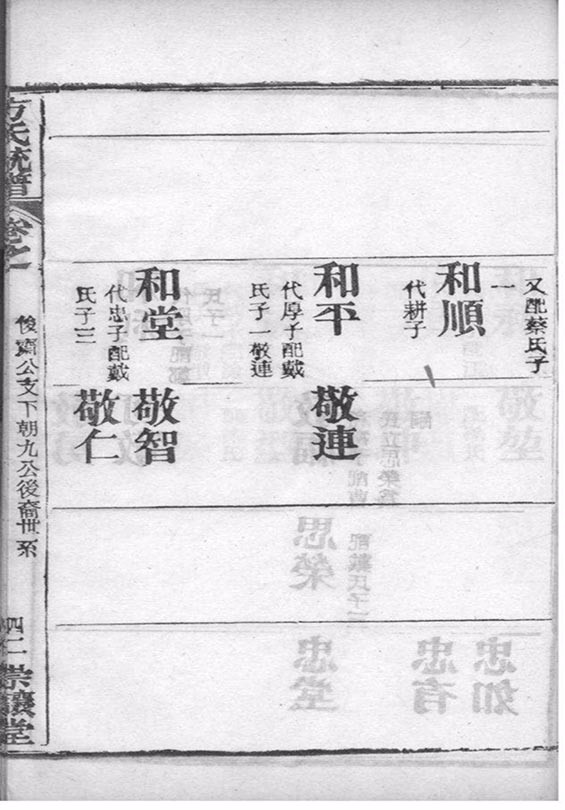 又配蔡氏子
一
和順
代耕子
和平
代厚子配戴
氏子一敬連
和堂
代忠子配戴
氏子三
敬連
敬智
敬仁
方氏統譜
卷之一
俊齋公支下朝九公後裔世系
四二
崇讓堂